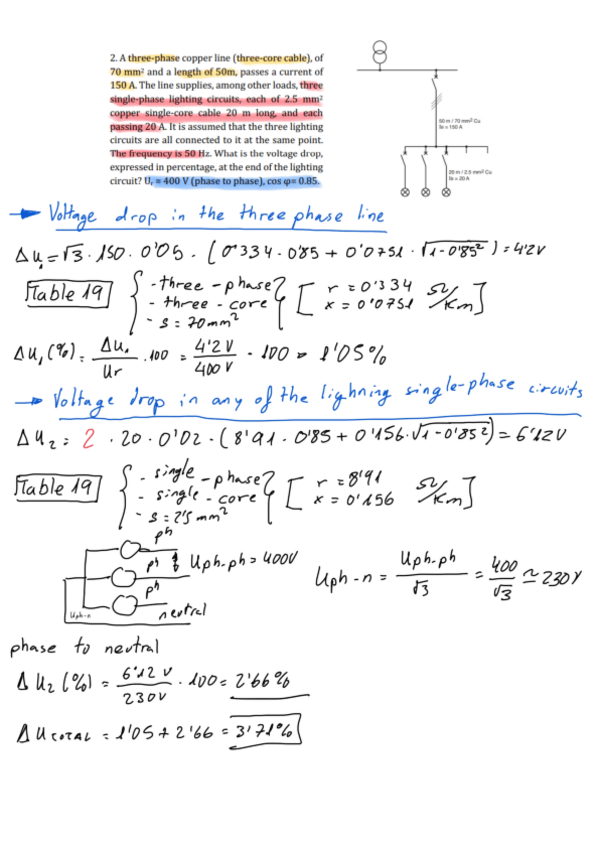 2. A three-phase copper line (three-core cable), of
70 mm² and a length of 50m, passes a current of
150 A. The line supplies, among other loads, three
single-phase lighting circuits, each of 2.5 mm²
copper single-core cable 20 m long, and each
passing 20 A. It is assumed that the three lighting
circuits are all connected to it at the same point.
The frequency is 50 Hz. What is the voltage drop,
expressed in percentage, at the end of the lighting
circuit? Uᵣ = 400 V (phase to phase), cos φ= 0.85.
50 m / 70 mm² Cu
IB = 150 A
20 m / 2.5 mm² Cu
IB = 20 A
→ Voltage drop in the three phase line
Δu₁ = √3 · 150 · 0'05 · (0'334 · 0'85 + 0'0751 · √1-0'85²) = 4'2V
Table 19
- three - phase
- three - core
- s = 70mm²
[ r = 0'334
x = 0'0751 Ω/Km ]
Δu₁ (%) = Δu₁/Ur · 100 = 4'2V/400V · 100 = 1'05%
→ Voltage drop in any of the lighning single-phase circuits
Δu₂ = 2 · 20 · 0'02 · (8'91 · 0'85 + 0'156 · √1-0'85²) = 6'12V
Table 19
- single - phase
- single - core
- s = 2'5 mm²
[ r = 8'91
x = 0'156 Ω/Km ]
ph
ph Uph-ph = 400V
ph
Uph-n
neutral
Uph-n = Uph-ph/√3 = 400/√3 ≃ 230V
phase to neutral
Δu₂ (%) = 6'12 V/230V · 100 = 2'66%
Δu TOTAL = 1'05 + 2'66 = 3'71%